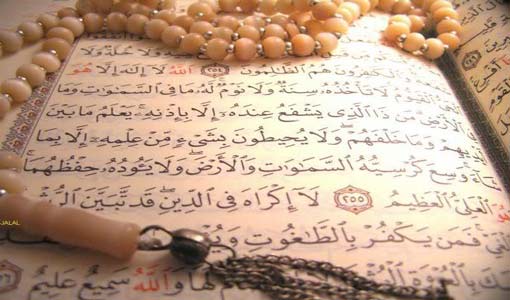 وَلَا خُلَّةٌ وَلَا
وَٱلْكَٰفِرُونَ هُمُ ٱلظَّٰلِمُونَ ٢٥٤ ٱللَّهُ لَآ إِلَٰهَ إِلَّا هُوَ
ٱلْقَيُّومُ لَا تَأْخُذُهُۥ سِنَةٌ وَلَا نَوْمٌ لَّهُۥ مَا فِى ٱلسَّمَٰوَٰتِ وَمَا
فِى ٱلْأَرْضِ مَن ذَا ٱلَّذِى يَشْفَعُ عِندَهُۥٓ إِلَّا بِإِذْنِهِۦ يَعْلَمُ مَا بَيْنَ
أَيْدِيهِمْ وَمَا خَلْفَهُمْ وَلَا يُحِيطُونَ بِشَىْءٍ مِّنْ عِلْمِهِۦٓ إِلَّا بِمَا
شَآءَ وَسِعَ كُرْسِيُّهُ ٱلسَّمَٰوَٰتِ وَٱلْأَرْضَ وَلَا يَـُٔودُهُۥ حِفْظُهُمَا
وَهُوَ ٱلْعَلِىُّ ٱلْعَظِيمُ ٢٥٥ لَآ إِكْرَاهَ فِى ٱلدِّينِ قَد تَّبَيَّنَ ٱلرُّشْدُ
فَمَن يَكْفُرْ بِٱلطَّٰغُوتِ
بِٱلْعُرْوَةِ لَهَا وَٱللَّهُ سَمِيعٌ عَلِيمٌ
JALAL